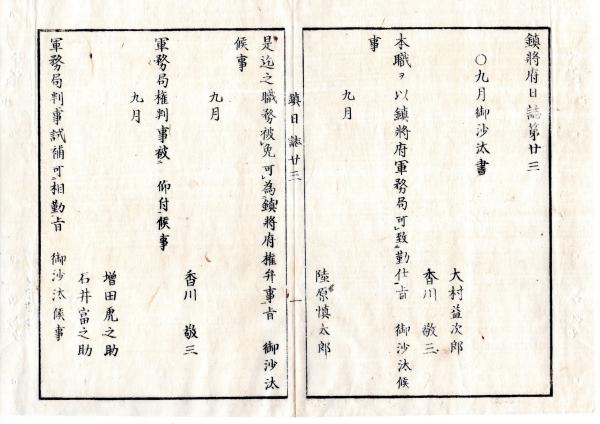 鎮將府日誌第廿三
〇九月御沙汰書
大村益次郎
香川 敬三
本職ヲ以鎮將府軍務局可致勤仕旨 御沙汰候
事
九月
陸原慎太郎
鎮日誌廿三
一
是迄之職務被免可為鎮將府権弁事旨 御沙汰
候事
九月
香川 敬三
軍務局権判事被 仰付候事
九月
増田虎之助
石井富之助
軍務局判事試補可相勤旨 御沙汰候事